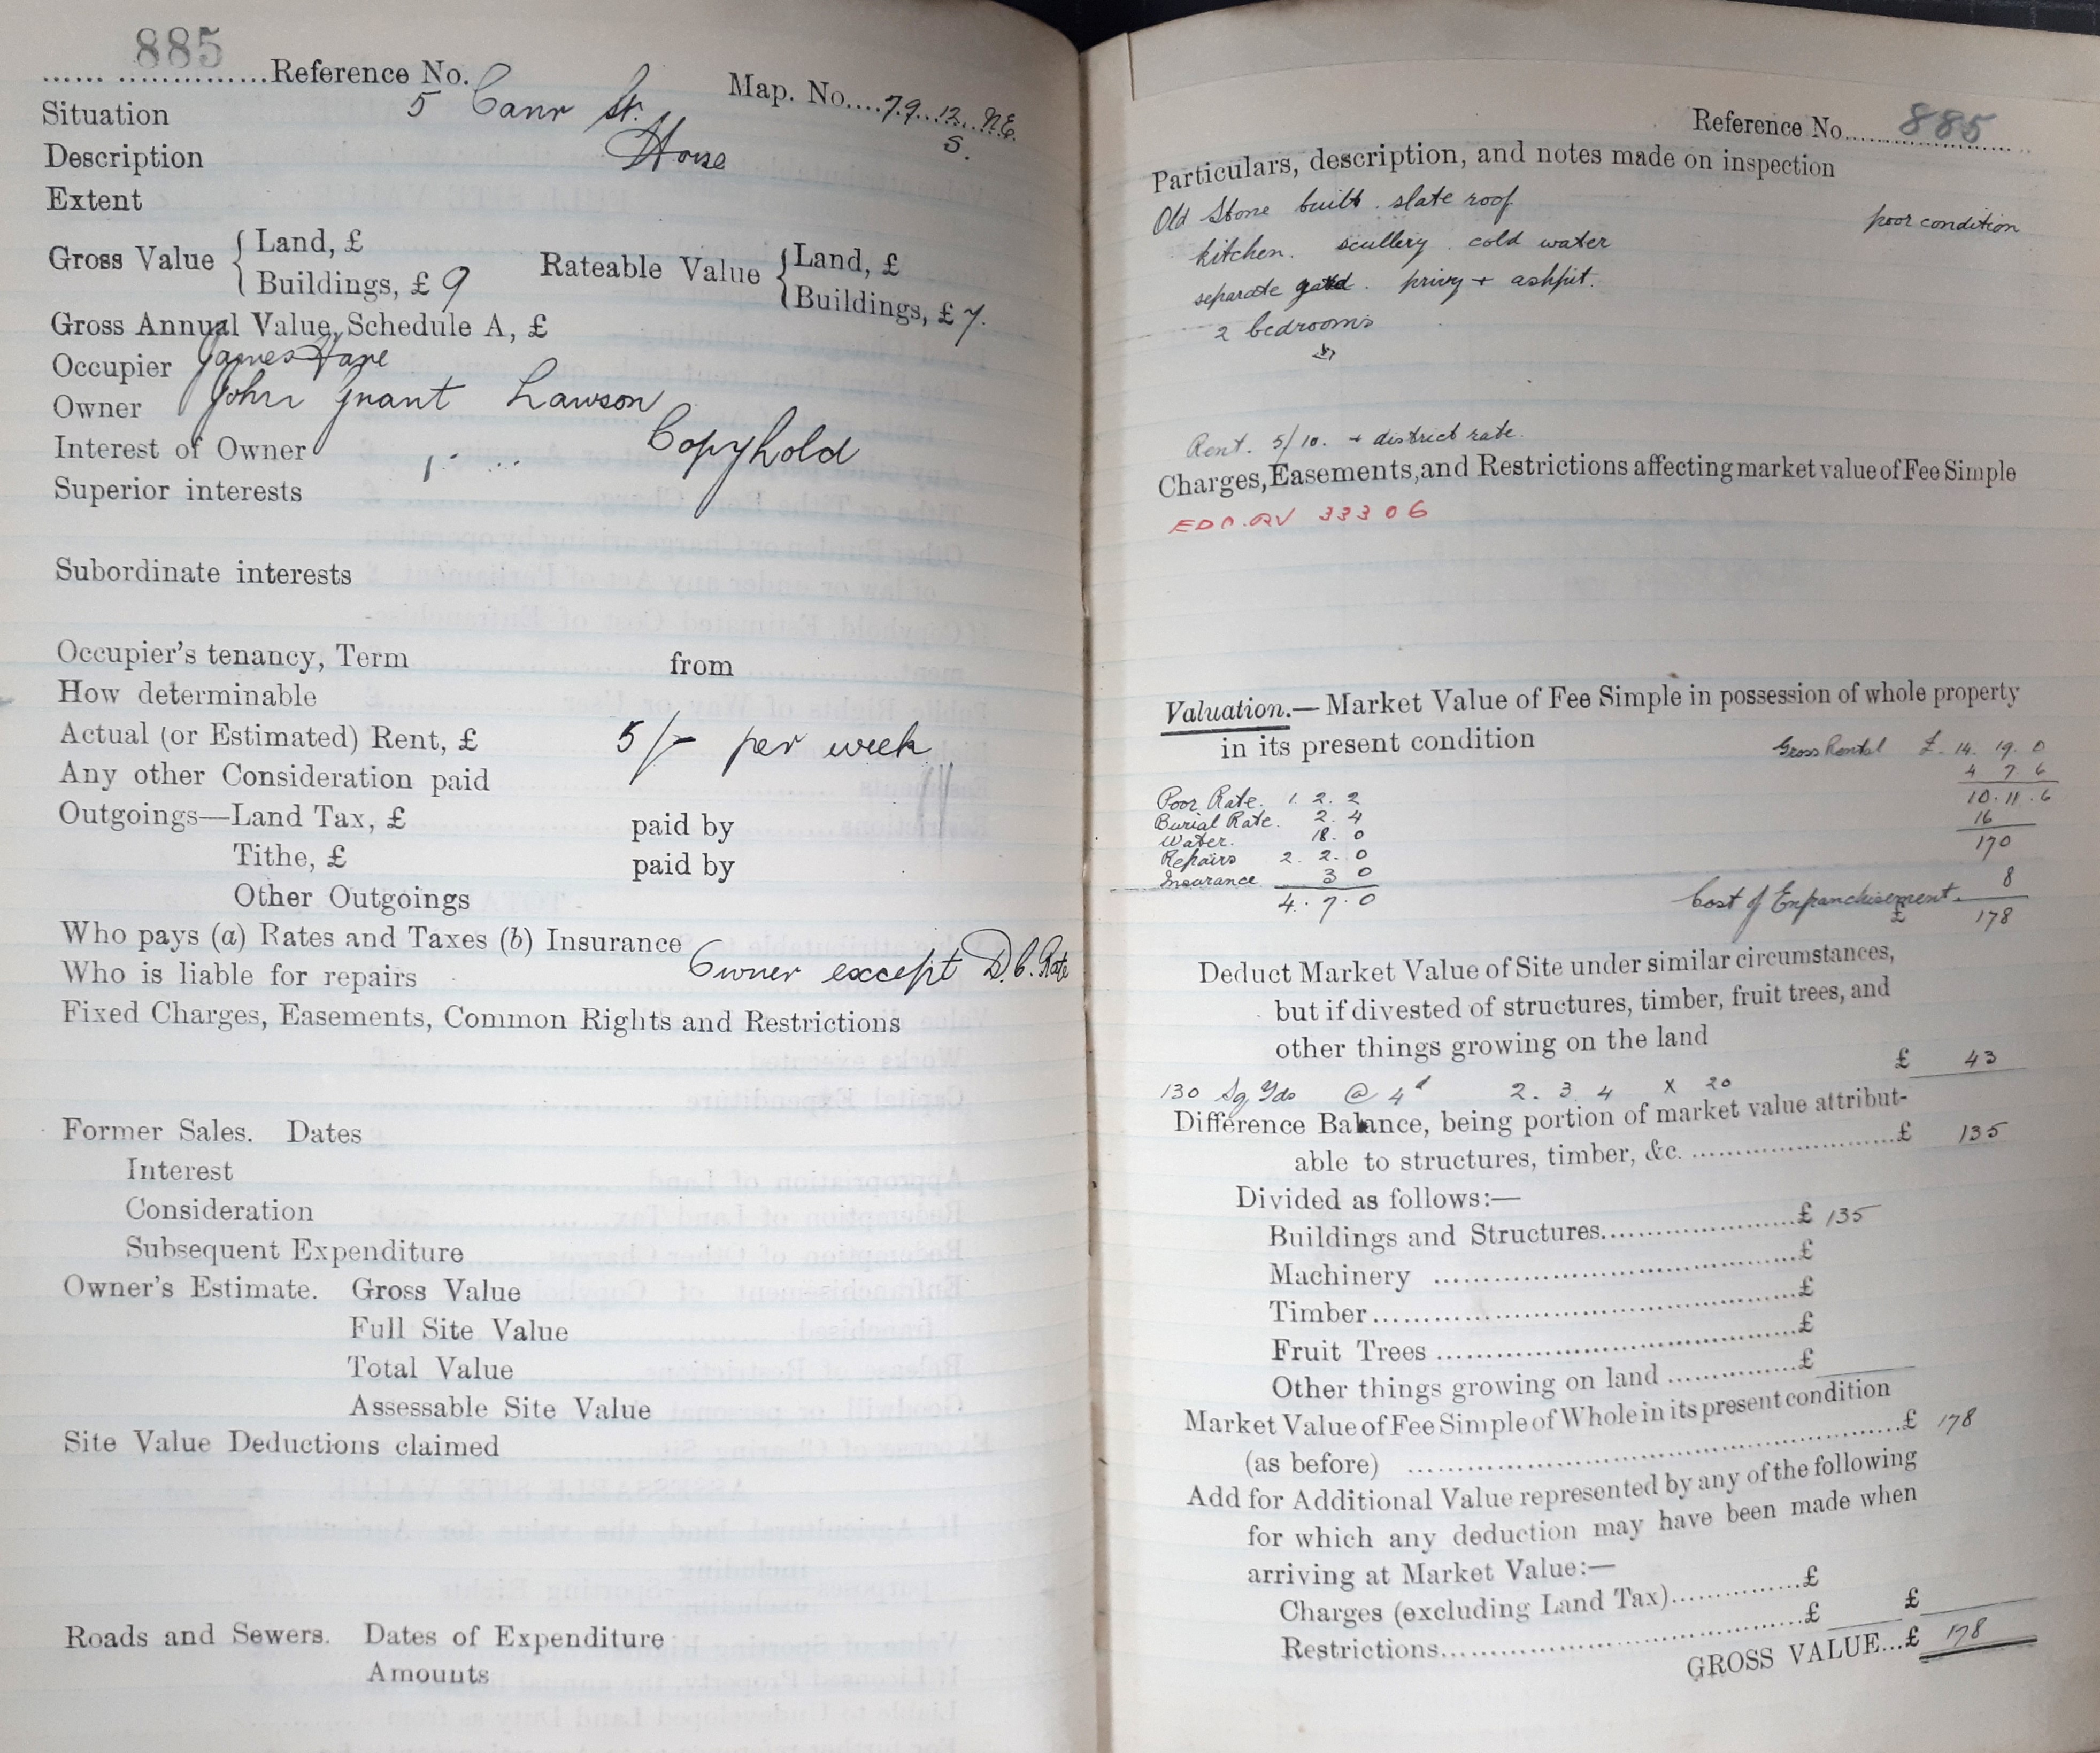 885
Reference No.
Map. No. 79. 12. N.E.
S.
Situation 5 Carr St.
Description House
Extent
Gross Value { Land, £
Buildings, £ 9
Rateable Value { Land, £
Buildings, £ 7.
Gross Annual Value, Schedule A, £
Occupier James
Owner John Grant Lawson
Interest of Owner Copyhold
Superior interests
Subordinate interests
Occupier's tenancy, Term from
How determinable
Actual (or Estimated) Rent, £ 5/- per week
Any other Consideration paid
Outgoings—Land Tax, £ paid by
Tithe, £ paid by
Other Outgoings
Who pays (a) Rates and Taxes (b) Insurance
Who is liable for repairs Owner except D.C. Rate
Fixed Charges, Easements, Common Rights and Restrictions
Former Sales. Dates
Interest
Consideration
Subsequent Expenditure
Owner's Estimate. Gross Value
Full Site Value
Total Value
Assessable Site Value
Site Value Deductions claimed
Roads and Sewers. Dates of Expenditure
Amounts
Reference No. 885
Particulars, description, and notes made on inspection
Old Stone built. slate roof
poor condition
kitchen. scullery. cold water
separate yard. privy + ashpit.
2 bedrooms
Rent. 5/10. + district rate.
Charges, Easements, and Restrictions affecting market value of Fee Simple
33306
Valuation.—Market Value of Fee Simple in possession of whole property
in its present condition
Gross Rental £. 14. 19. 0
4 7 6
10. 11. 6
16
170
Poor Rate. 1. 2. 2
Burial Rate. 2. 4
Water. 18. 0
Repairs 2. 2. 0
Insurance 3 0
4. 7. 0
Cost of Enfranchisement. 8
£ 178
Deduct Market Value of Site under similar circumstances,
but if divested of structures, timber, fruit trees, and
other things growing on the land
£ 43
130 Sq Yds @ 4d 2. 3. 4 x 20
Difference Balance, being portion of market value attribut-
able to structures, timber, &c. £ 135
Divided as follows:—
Buildings and Structures £ 135
Machinery £
Timber £
Fruit Trees £
Other things growing on land £
Market Value of Fee Simple of Whole in its present condition
(as before) £ 178
Add for Additional Value represented by any of the following
for which any deduction may have been made when
arriving at Market Value:—
Charges (excluding Land Tax) £
Restrictions £ £
GROSS VALUE...£ 178